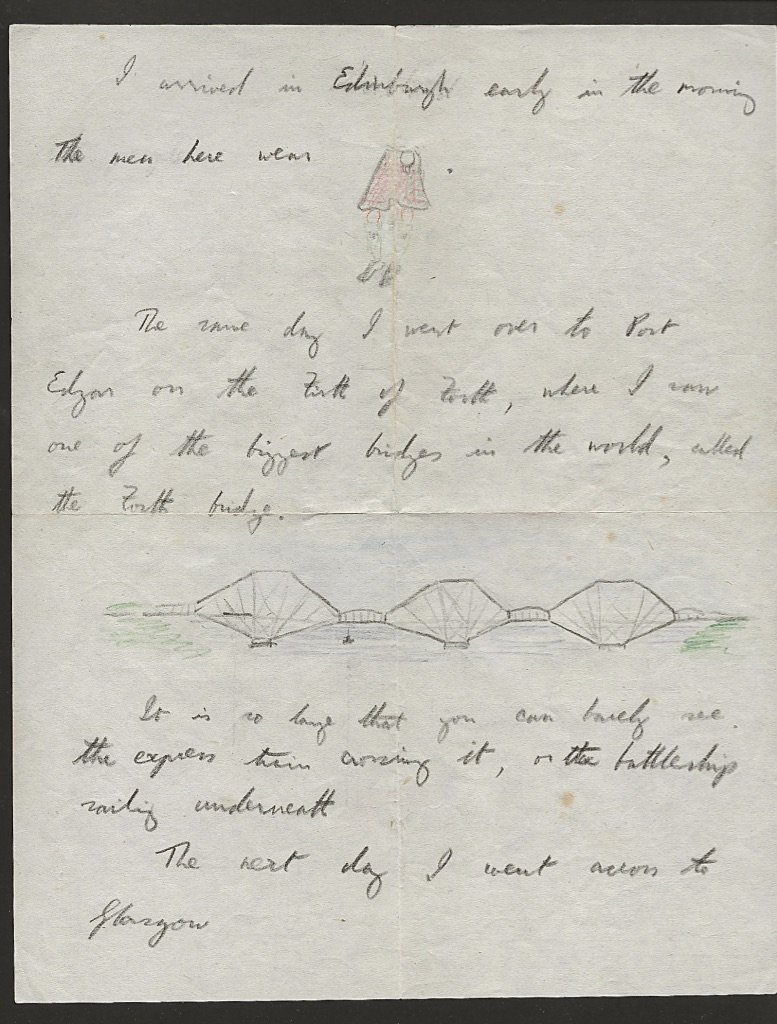 I arrived in Edinburgh early in the morning
The men here wear .
The same day I went over to Port
Edgar on the Firth of Forth, where I saw
one of the biggest bridges in the world, called
the Forth bridge.
It is so large that you can barely see
the express train crossing it, or the battleship
sailing underneath
The next day I went across to
Glasgow